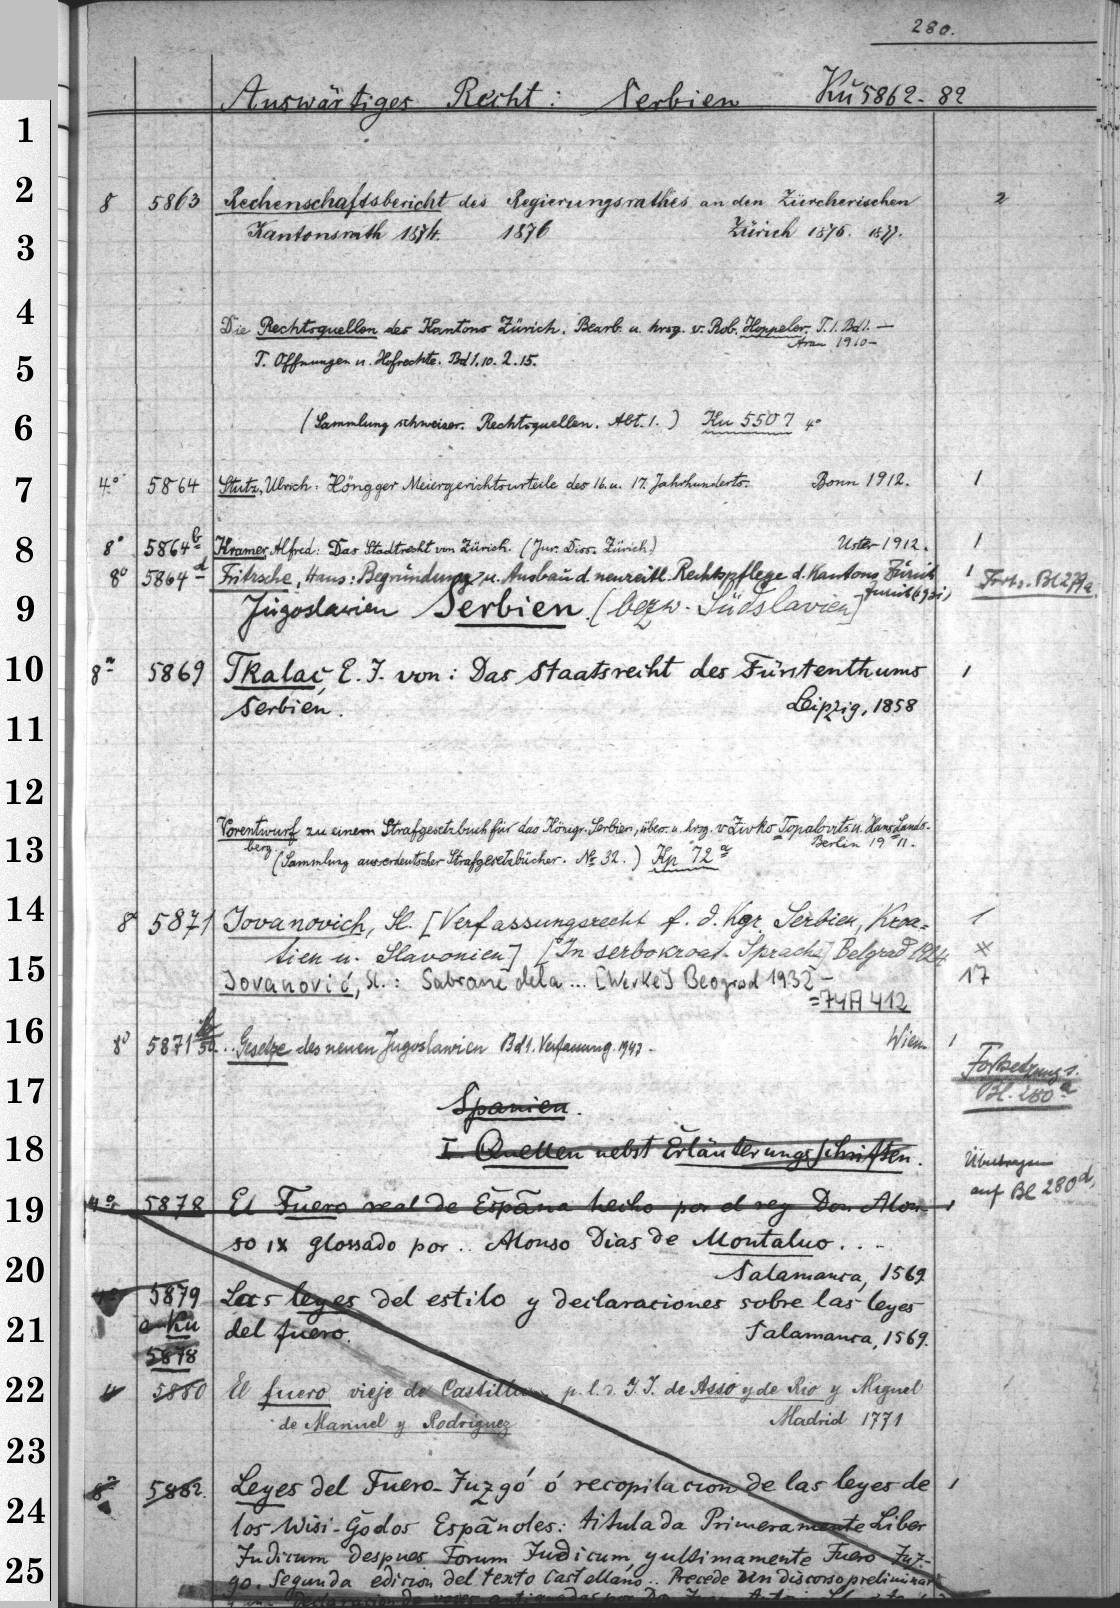 280.
Auswärtiges Recht: Serbien Kü 5862-82
1
2
8 5863 Rechenschaftsbericht des Regierungsrathes an den Zürcherischen 2
3
Kantonsrath 1874. 1876 Zürich 1875. 1877.
4
Die Rechtsquellen des Kantons Zürich. Bearb. u. hrsg. v. Rob. Hoppeler. T. 1. Bd 1. —
Arau 1910-
5
T. Offnungen u. Hofrechte. Bd 1. 10. 2. 15.
6
(Sammlung schweizer. Rechtsquellen. Abt. 1.) Ku 5507 4°
7
4° 5864 Stutz, Ulrich: Höngger Meiergerichtsurteile des 16. u. 17. Jahrhunderts. Bonn 1912. 1
8
8° 5864 b Kramer, Alfred: Das Stadtrecht von Zürich. (Jur. Diss. Zürich) Uster 1912. 1
8° 5864 d Fritzsche, Hans: Begründung u. Ausbau d. neuzeitl. Rechtspflege d. Kantons Zürich 1 Forts. Bl 279a.
Zürich 1931
9
Jugoslawien Serbien. [bezw. Südslavien]
10
8° 5869 Tkalac, E. J. von: Das Staatsrecht des Fürstenthums 1
Serbien. Leipzig, 1858
11
12
Vorentwurf zu einem Strafgesetzbuch für das Königr. Serbien, übers. u. hrsg. v. Zivko Topalovits u. Hans Lands-
berg. Berlin 1911.
13
(Sammlung ausserdeutscher Strafgesetzbücher. No 32.) Kp 72 a
14
8° 5871 Jovanovich, Sl. [Verfassungsrecht f. d. Kgr. Serbien, Kroa= 1
tien u. Slavonien] [In serbokroat. Sprache] Belgrad 1924 x
15
Jovanović, Sl.: Sabrane dela ... [Werke] Beograd 1932 - 17
=74A412
16
8° 5871 b/50 .. Gesetze des neuen Jugoslawien Bd 1. Verfassung. 1947. Wien 1
Fortsetzung s.
Bl. 280 a
17
Spanien.
18
I. Quellen nebst Erläuterungsschriften.
Übertragen
auf Bl 280 d,
19
4° 5878 El Fuero real de Espãna hecho por el rey Don Alon- 1
so IX glossado por .. Alonso Dias de Montaluo. . .
20
Salamanca, 1569.
5879 Las leyes del estilo y declaraciones sobre las leyes
21
a Ku del fuero. Salamanca, 1569.
5878
22
4 5880 El fuero vieje de Castilla, p. l. d. J. J. de Asso y de Rio y Miguel
de Manuel y Rodriguez Madrid 1771
23
8° 5882. Leyes del Fuero-Juzgó ó recopilacion de las leyes de 1
24
los Wisi-Godos Espãnoles: titulada Primeramente Liber
Judicum despues Forum Judicum y ultimamente Fuero Juz-
25
go. Segunda edicion del texto castellano.. Precede un discorso preliminar